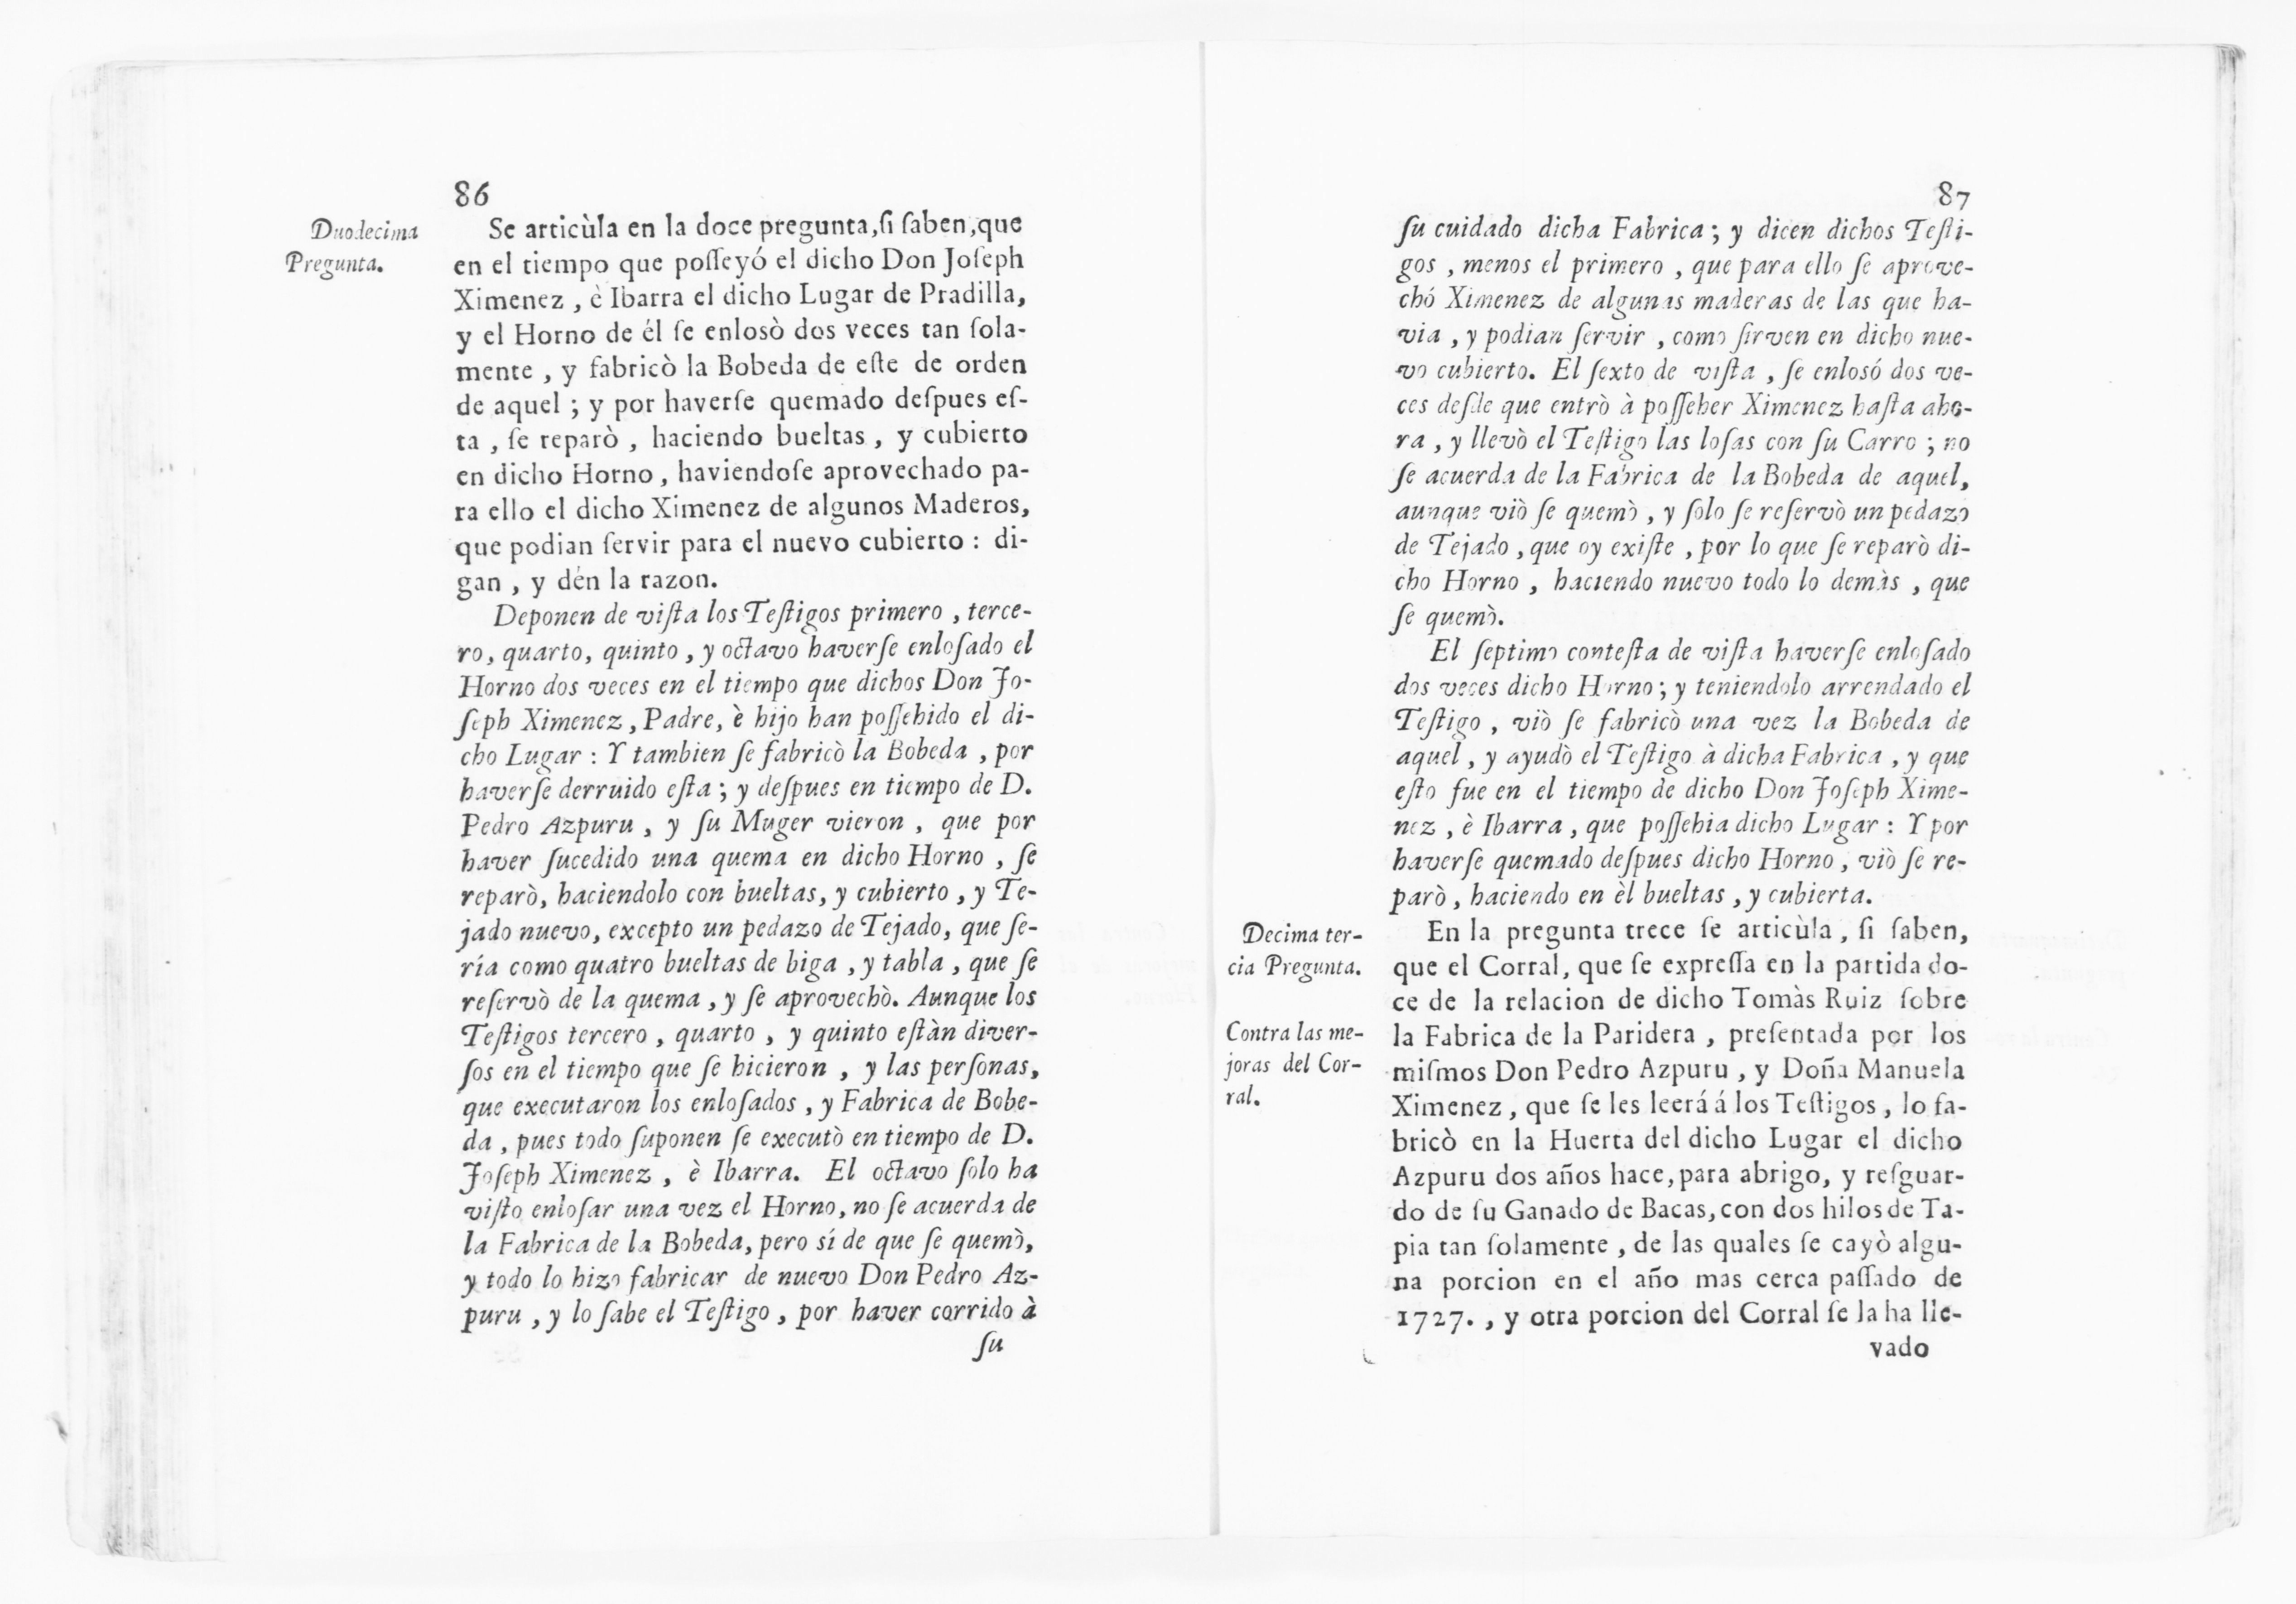 86
Duodecima
Pregunta.
Se articùla en la doce pregunta,ſi ſaben,que
en el tiempo que poſſeyó el dicho Don Joſeph
Ximenez , è Ibarra el dicho Lugar de Pradilla,
y el Horno de él ſe enlosò dos veces tan ſola-
mente , y fabricò la Bobeda de eſte de orden
de aquel ; y por haverſe quemado deſpues eſ-
ta , ſe reparò , haciendo bueltas , y cubierto
en dicho Horno , haviendoſe aprovechado pa-
ra ello el dicho Ximenez de algunos Maderos,
que podian ſervir para el nuevo cubierto : di-
gan , y dén la razon.
Deponen de viſta los Teſtigos primero , terce-
ro, quarto, quinto , y octavo haverſe enloſado el
Horno dos veces en el tiempo que dichos Don Jo-
ſeph Ximenez , Padre, è hijo han poſſehido el di-
cho Lugar : Y tambien ſe fabricò la Bobeda , por
haverſe derruido eſta ; y deſpues en tiempo de D.
Pedro Azpuru , y ſu Muger vieron , que por
haver ſucedido una quema en dicho Horno , ſe
reparò, haciendolo con bueltas, y cubierto , y Te-
jado nuevo, excepto un pedazo de Tejado, que ſe-
ría como quatro bueltas de biga , y tabla , que ſe
reſervò de la quema , y ſe aprovechò. Aunque los
Teſtigos tercero , quarto , y quinto eſtàn diver-
ſos en el tiempo que ſe hicieron , y las perſonas,
que executaron los enloſados , y Fabrica de Bobe-
da , pues todo ſuponen ſe executò en tiempo de D.
Joſeph Ximenez , è Ibarra. El octavo ſolo ha
viſto enloſar una vez el Horno, no ſe acuerda de
la Fabrica de la Bobeda, pero sí de que ſe quemò,
y todo lo hizo fabricar de nuevo Don Pedro Az-
puru , y lo ſabe el Teſtigo , por haver corrido à
ſu
87
ſu cuidado dicha Fabrica ; y dicen dichos Teſti-
gos , menos el primero , que para ello ſe aprove-
chó Ximenez de algunas maderas de las que ha-
via , y podian ſervir , como ſirven en dicho nue-
vo cubierto. El ſexto de viſta , ſe enlosó dos ve-
ces deſde que entrò à poſſeher Ximenez haſta aho-
ra , y llevò el Teſtigo las loſas con ſu Carro ; no
ſe acuerda de la Fabrica de la Bobeda de aquel,
aunque viò ſe quemò , y ſolo ſe reſervò un pedazo
de Tejado , que oy exiſte , por lo que ſe reparò di-
cho Horno , haciendo nuevo todo lo demàs , que
ſe quemò.
El ſeptimo conteſta de viſta haverſe enloſado
dos veces dicho Horno ; y teniendolo arrendado el
Teſtigo , viò ſe fabricò una vez la Bobeda de
aquel , y ayudò el Teſtigo à dicha Fabrica , y que
eſto fue en el tiempo de dicho Don Joſeph Xime-
nez , è Ibarra , que poſſehia dicho Lugar : Y por
haverſe quemado deſpues dicho Horno , viò ſe re-
parò , haciendo en èl bueltas , y cubierta.
Decima ter-
cia Pregunta.
Contra las me-
joras del Cor-
ral.
En la pregunta trece ſe articùla , ſi ſaben,
que el Corral, que ſe expreſſa en la partida do-
ce de la relacion de dicho Tomàs Ruiz ſobre
la Fabrica de la Paridera , preſentada por los
miſmos Don Pedro Azpuru , y Doña Manuela
Ximenez , que ſe les leerá á los Teſtigos , lo fa-
bricò en la Huerta del dicho Lugar el dicho
Azpuru dos años hace, para abrigo, y reſguar-
do de ſu Ganado de Bacas, con dos hilos de Ta-
pia tan ſolamente , de las quales ſe cayò algu-
na porcion en el año mas cerca paſſado de
1727. , y otra porcion del Corral ſe la ha lle-
vado